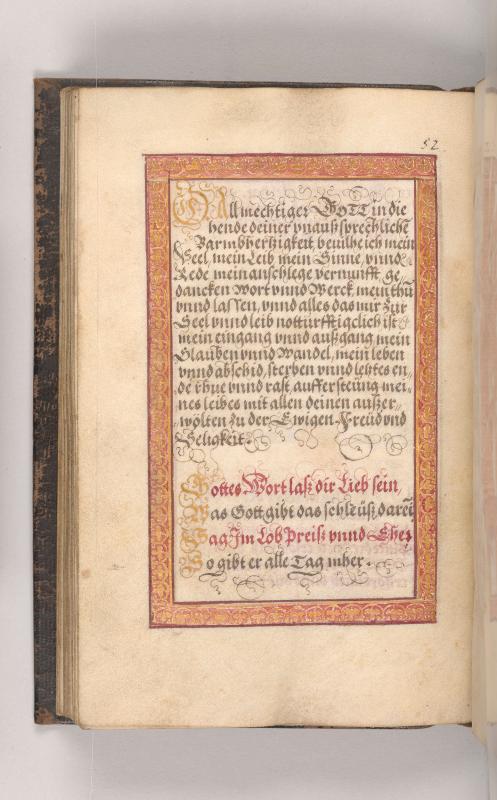 52
O Allmechtiger GOTT in die
hende deiner vnaußsprechlichē
Barmbhertzigkeit beuilhe ich mein
Seel, mein Leib mein Sinne, vnnd
Rede mein anschlege vernunfft ge
dancken wort vnnd Werck, mein thū
vnnd lassen, vnnd alles das mir zur
Seel vnnd leib notturfftigclich ist
mein eingang vnnd außgang mein
Glauben vnnd Wandel, mein leben
vnnd abschid, sterben vnnd lehtes en„
de rhue vnnd rast, auffersteung mei„
nes leibes mit allen deinen außer„
wölten zu der Ewigen Freüd vnd
Seligkeit.
Gottes Wort laß dir Lieb sein,
Was Gott gibt das schleüß darein
Sag Im Lob Preiß vnnd Eher
So gibt er alle Tag mher.